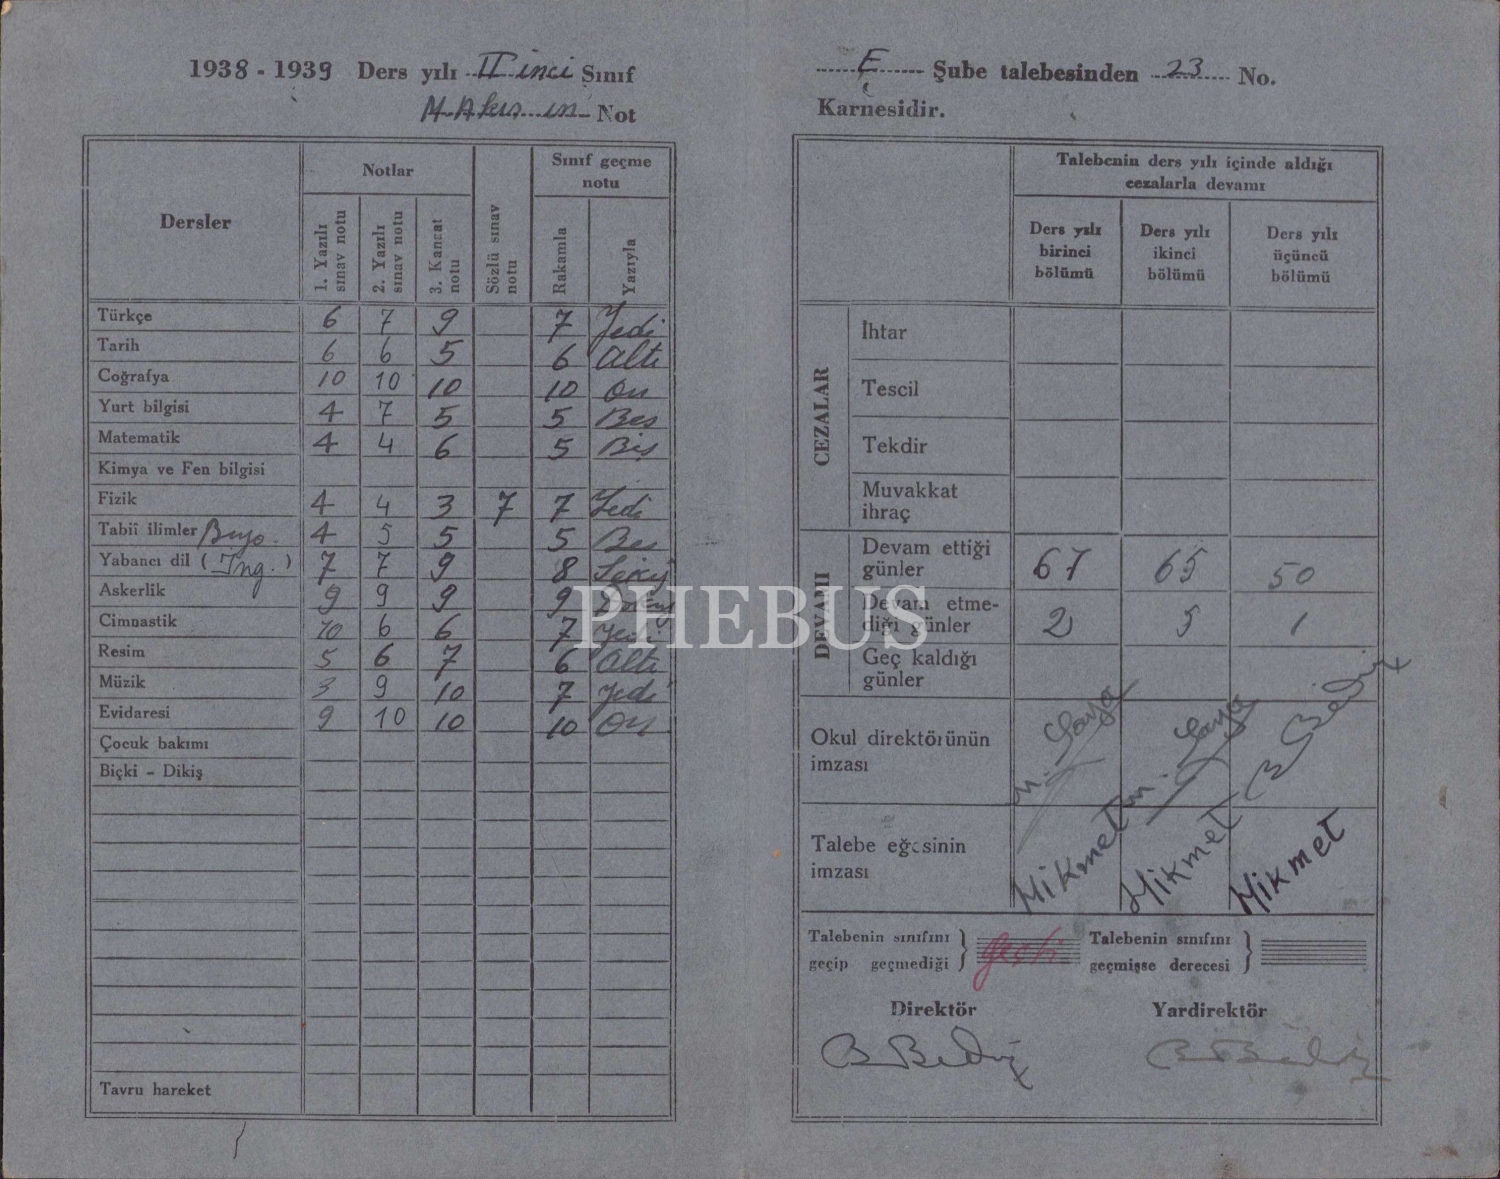 1938 - 1939 Ders yılı II inci Sınıf
M. Akus ın Not
Dersler Notlar Sözlü sınav notu Sınıf geçme notu
1. Yazılı sınav notu 2. Yazılı sınav notu 3. Kanaat notu Rakamla Yazıyla
Türkçe 6 7 9 7 Yedi
Tarih 6 6 5 6 Altı
Coğrafya 10 10 10 10 On
Yurt bilgisi 4 7 5 5 Beş
Matematik 4 4 6 5 Beş
Kimya ve Fen bilgisi
Fizik 4 4 3 7 7 Yedi
Tabiî ilimler 4 5 5 5 Beş
Yabancı dil (İng.) 7 7 9 8 Sekiz
Askerlik 9 9 9 9 Dokuz
Cimnastik 10 6 6 7 Yedi
Resim 5 6 7 6 Altı
Müzik 3 9 10 7 Yedi
Evidaresi 9 10 10 10 On
Çocuk bakımı
Biçki - Dikiş
Tavru hareket
E Şube talebesinden 23 No.
Karnesidir.
Talebenin ders yılı içinde aldığı
cezalarla devamı
Ders yılı birinci bölümü Ders yılı ikinci bölümü Ders yılı üçüncü bölümü
CEZALAR
İhtar
Tescil
Tekdir
Muvakkat
ihraç
DEVAMI
Devam ettiği
günler 67 65 50
Devam etme-
diği günler 2 5 1
Geç kaldığı
günler
Okul direktörünün
imzası
Talebe eğesinin
imzası Hikmet Hikmet Hikmet
Talebenin sınıfını
geçip geçmediği } geçti
Talebenin sınıfını
geçmişse derecesi }
Direktör Yardirektör
PHEBUS